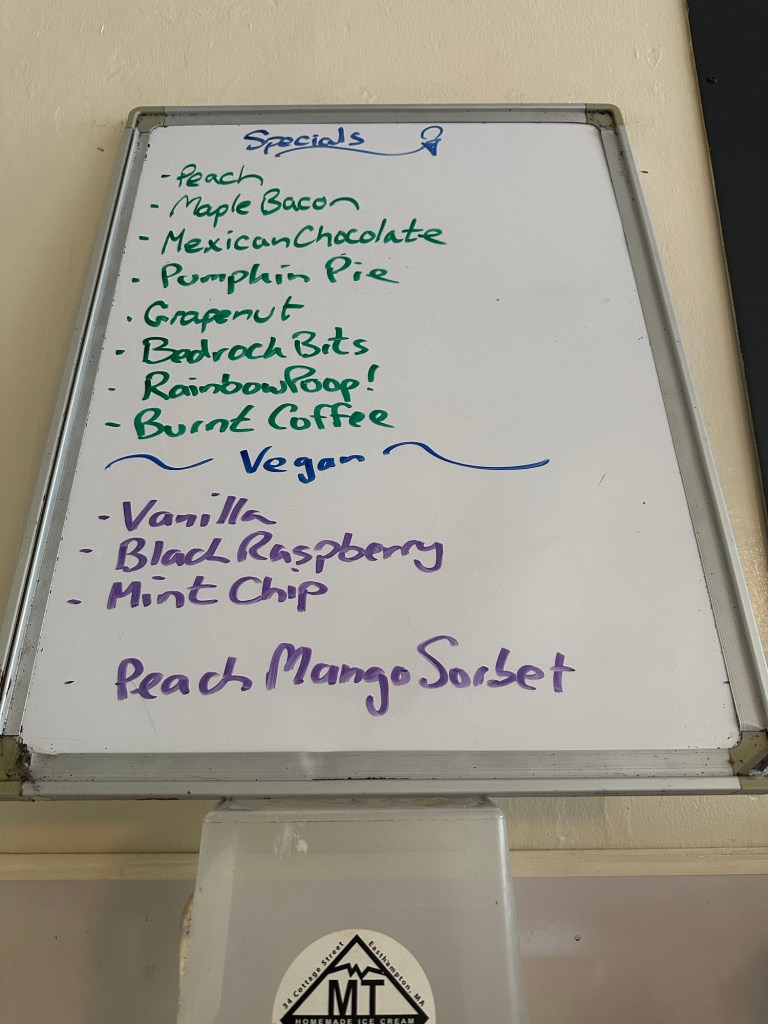 Specials
- Peach
- Maple Bacon
- Mexican Chocolate
- Pumpkin Pie
- Grapenut
- Bedrock Bits
- Rainbow Poop!
- Burnt Coffee
Vegan
- Vanilla
- Black Raspberry
- Mint Chip
- Peach Mango Sorbet
34 Cottage Street
Easthampton, MA
MT
HOMEMADE ICE CREAM